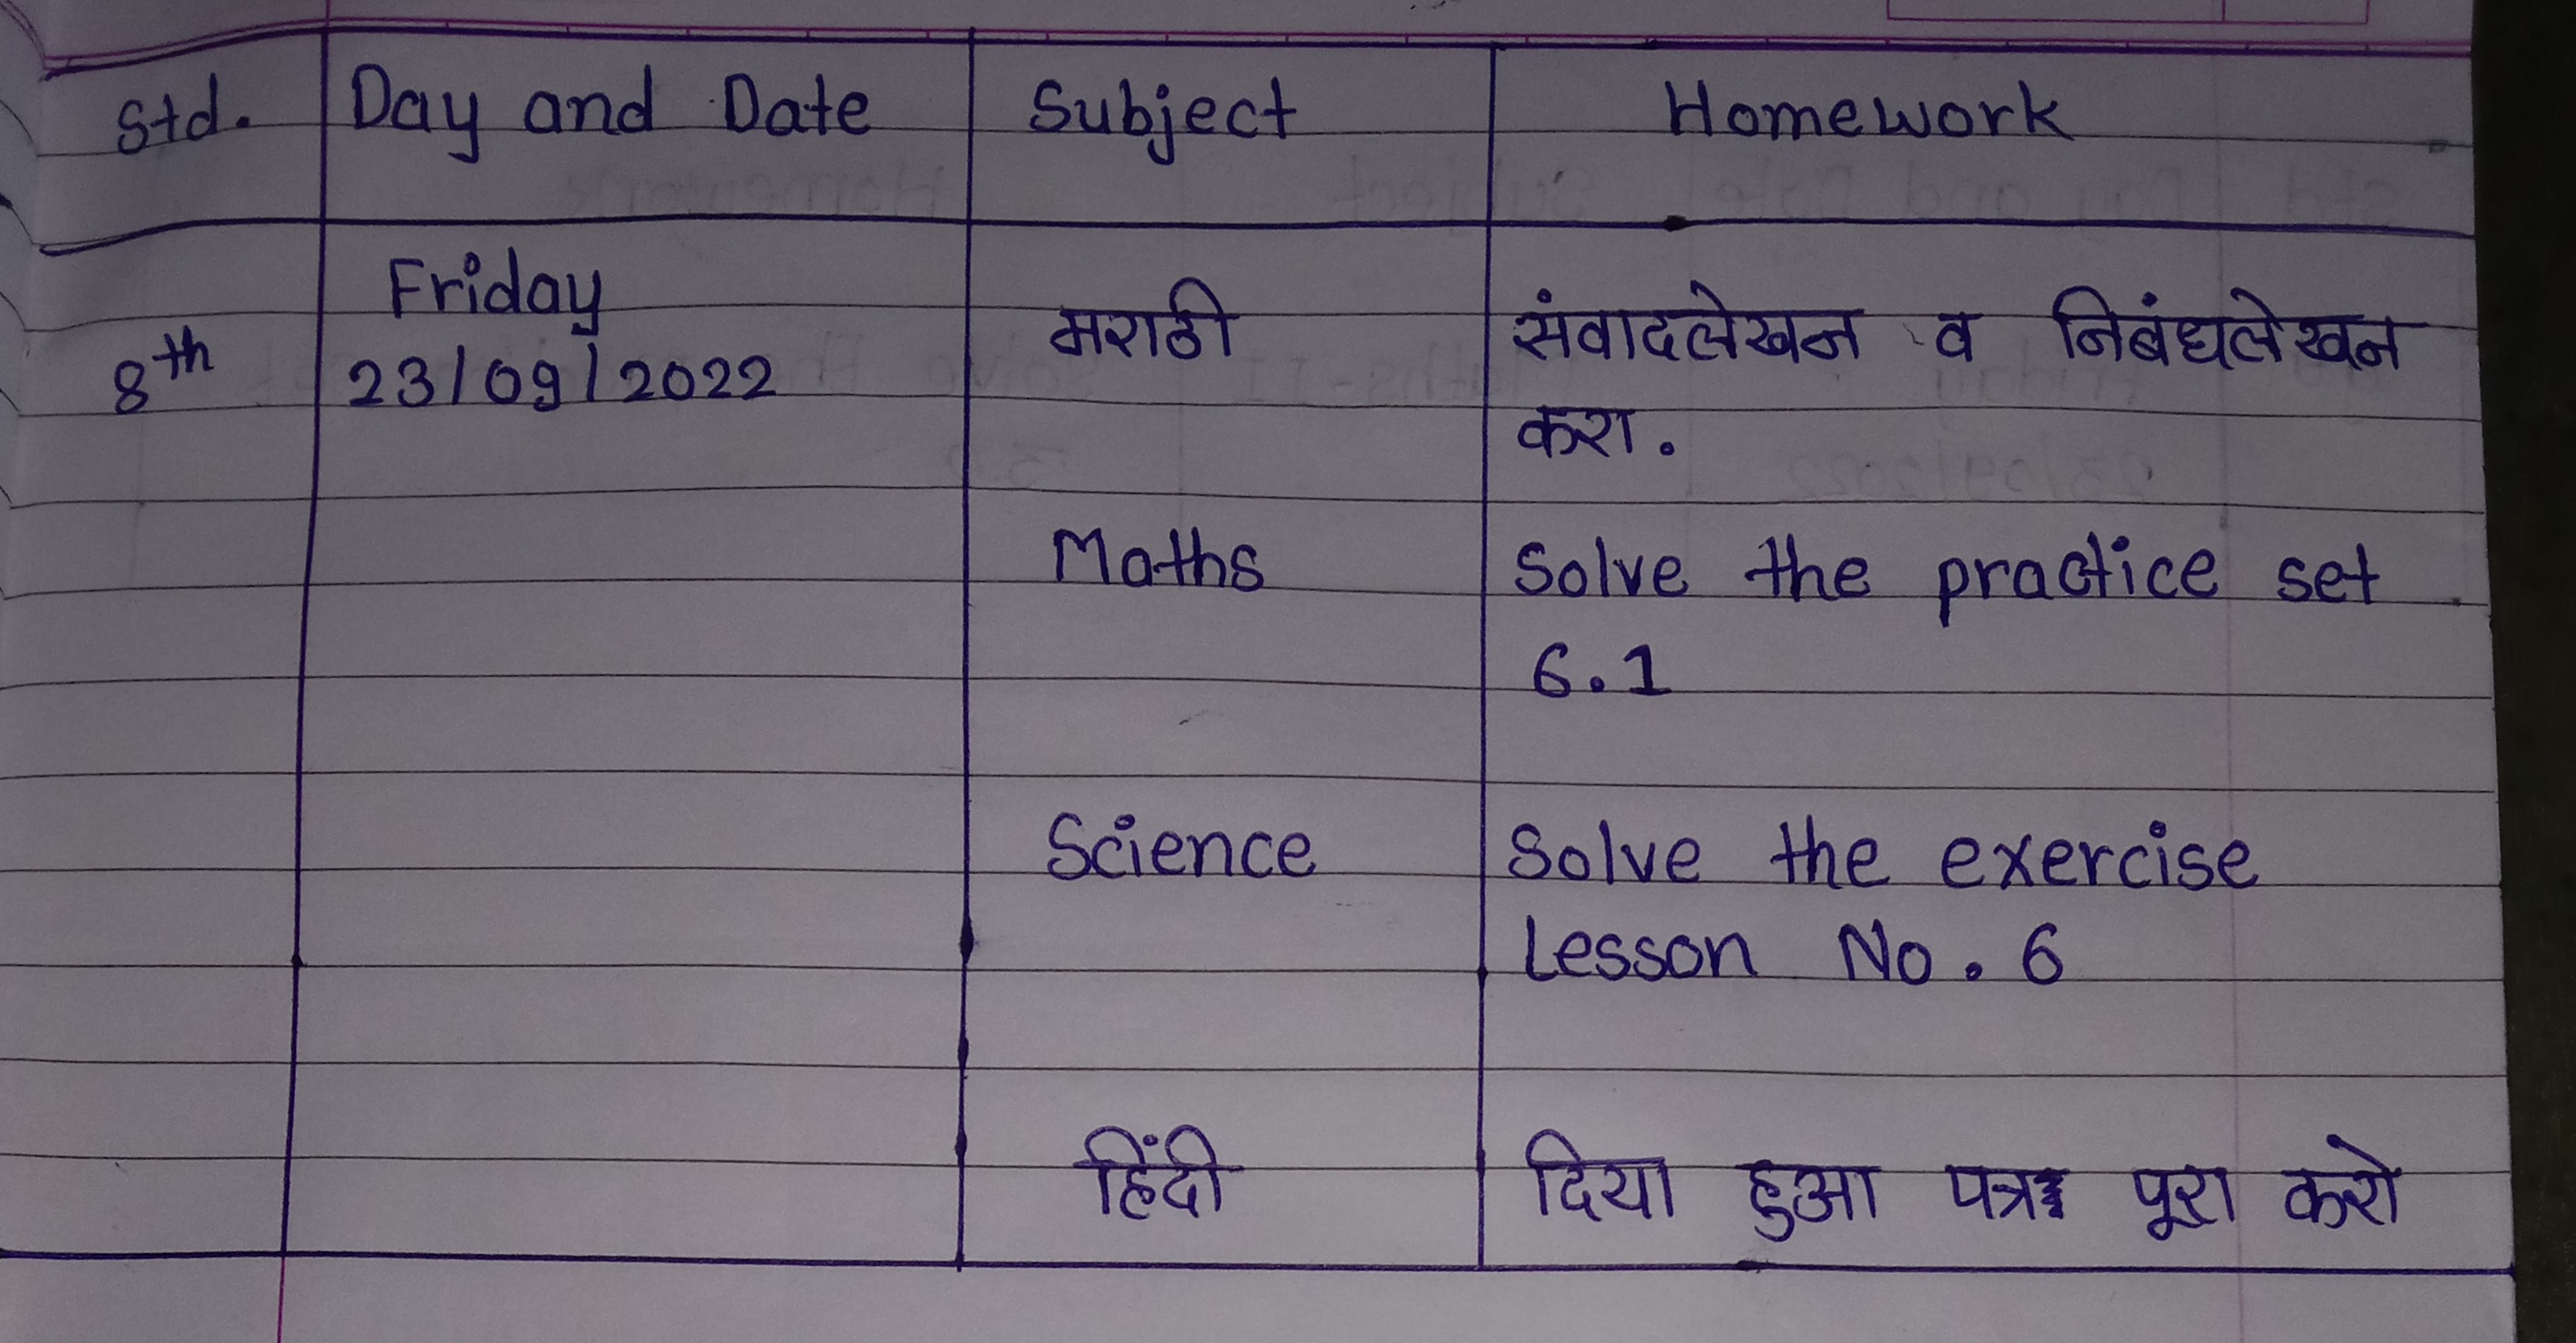 Std. Day and Date Subject Homework
Friday
8th 23/09/2022 मराठी संवादलेखन व निबंधलेखन
करा.
Maths Solve the practice set
6.1
Science Solve the exercise
Lesson No. 6
हिंदी दिया हुआ पत्र पूरा करो